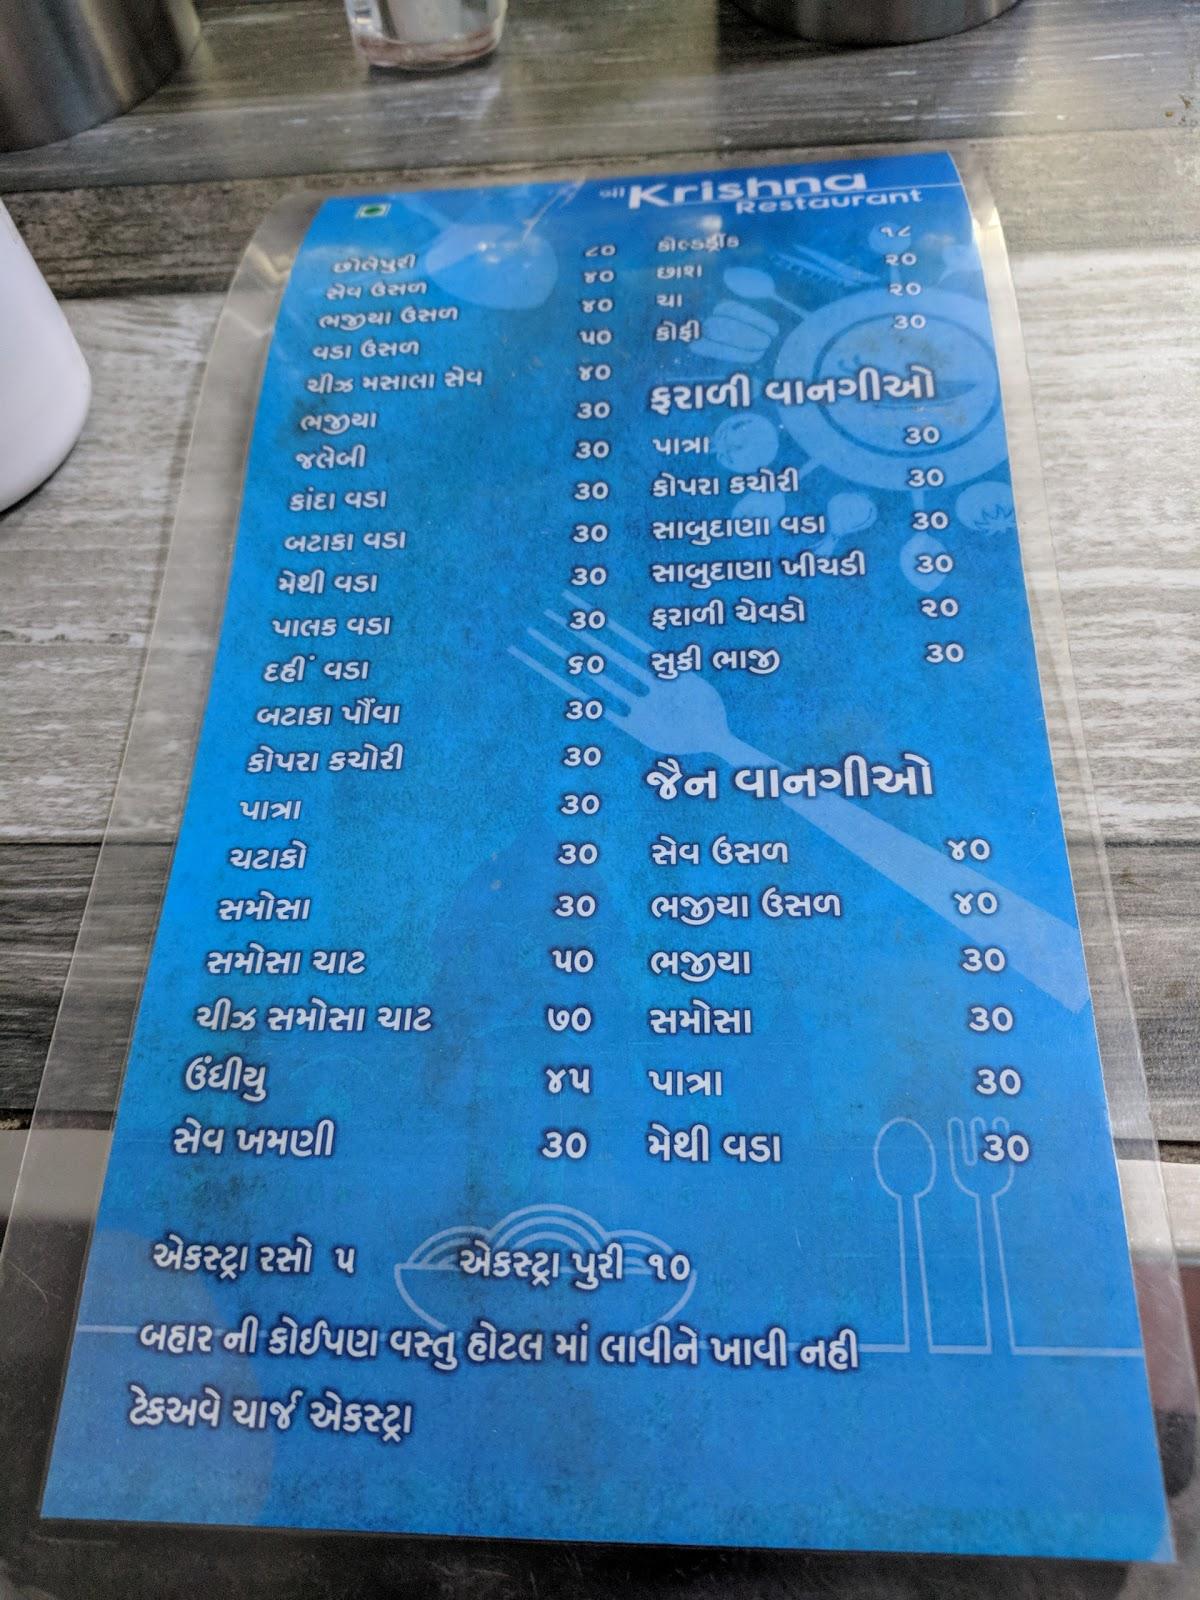 શ્રી Krishna
Restaurant
છોલેપુરી ૮૦
સેવ ઉસળ ૪૦
ભજીયા ઉસળ ૪૦
વડા ઉસળ ૫૦
ચીઝ મસાલા સેવ ૪૦
ભજીયા ૩૦
જલેબી ૩૦
કાંદા વડા ૩૦
બટાકા વડા ૩૦
મેથી વડા ૩૦
પાલક વડા ૩૦
દહીં વડા ૬૦
બટાકા પૌંવા ૩૦
કોપરા કચોરી ૩૦
પાત્રા ૩૦
ચટાકો ૩૦
સમોસા ૩૦
સમોસા ચાટ ૫૦
ચીઝ સમોસા ચાટ ૭૦
ઉંધીયુ ૪૫
સેવ ખમણી ૩૦
કોલ્ડડ્રીંક ૧૮
છાશ ૨૦
ચા ૨૦
કોફી ૩૦
ફરાળી વાનગીઓ
પાત્રા ૩૦
કોપરા કચોરી ૩૦
સાબુદાણા વડા ૩૦
સાબુદાણા ખીચડી ૩૦
ફરાળી ચેવડો ૨૦
સુકી ભાજી ૩૦
જૈન વાનગીઓ
સેવ ઉસળ ૪૦
ભજીયા ઉસળ ૪૦
ભજીયા ૩૦
સમોસા ૩૦
પાત્રા ૩૦
મેથી વડા ૩૦
એકસ્ટ્રા રસો ૫ એકસ્ટ્રા પુરી ૧૦
બહાર ની કોઈપણ વસ્તુ હોટલ માં લાવીને ખાવી નહી
ટેકઅવે ચાર્જ એકસ્ટ્રા